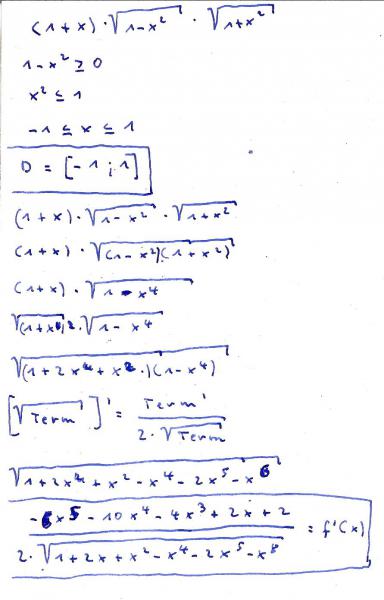 (1+x) · √(1-x²) · √(1+x²)
1-x² ≥ 0
x² ≤ 1
-1 ≤ x ≤ 1
D = [-1 ; 1]
(1+x) · √(1-x²) · √(1+x²)
(1+x) · √((1-x²)(1+x²))
(1+x) · √(1-x⁴)
√(1+x)² · √(1-x⁴)
√((1+2x+x²)·(1-x⁴))
[√Term]' = Term' / (2·√Term)
√(1+2x+x²-x⁴-2x⁵-x⁶)
(-6x⁵-10x⁴-4x³+2x+2) / (2·√(1+2x+x²-x⁴-2x⁵-x⁶)) = f'(x)